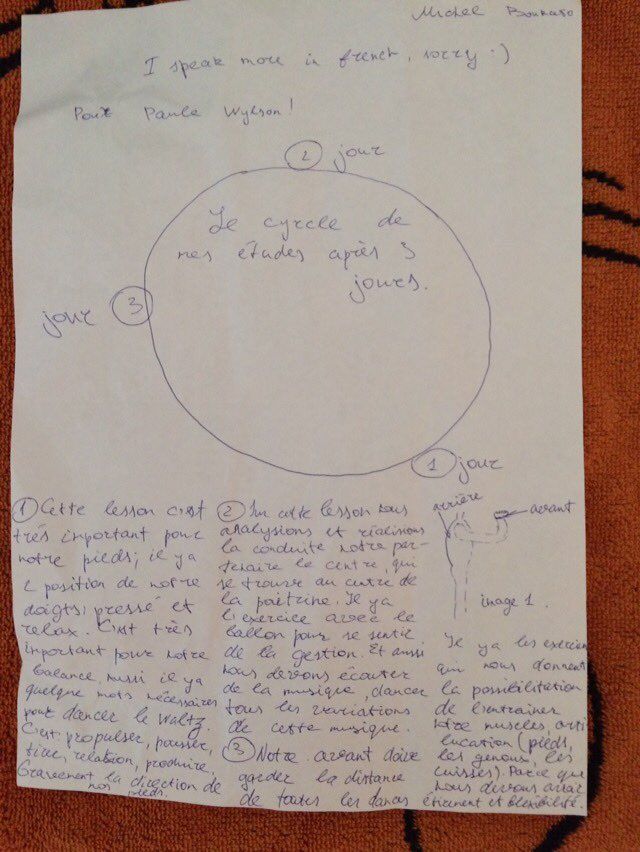 Michel
I speak more in french, sorry :)
Pour Paule Wylson!
2 jour
Le cyrcle de
mes études après 3
jours.
jour 3
1 jour
1 Cette lesson c'est
très important pour
notre pieds; il ya
2 position de notre
doigts; pressé et
relax. C'est très
important pour notre
balance, aussi il ya
quelque mots nécessaires
pour dancer le waltz.
C'est: propulser, pousser,
tirer, relation, produire,
la direction de
nos pieds.
2 Sur cette lesson nous
analysions et réalisions
la conduite notre par-
tenaire le centre, qui
se trouve au centre de
la poitrine. Il ya
l'exercice avec le
ballon pour se sentir
de la gestion. Et aussi
nous devons écouter
de la musique, dancer
tous les variations
de cette musique.
3 Notre avant doive
garder la distance
de toutes les dances
arrière
avant
image 1.
Il ya les exercices
qui nous donnent
la possibilitation
de l'entrainer
notre muscles, arti-
lucation (pieds,
les genous, les
cuisses). Parce que
nous devons avoir
étirement et flexibilité.